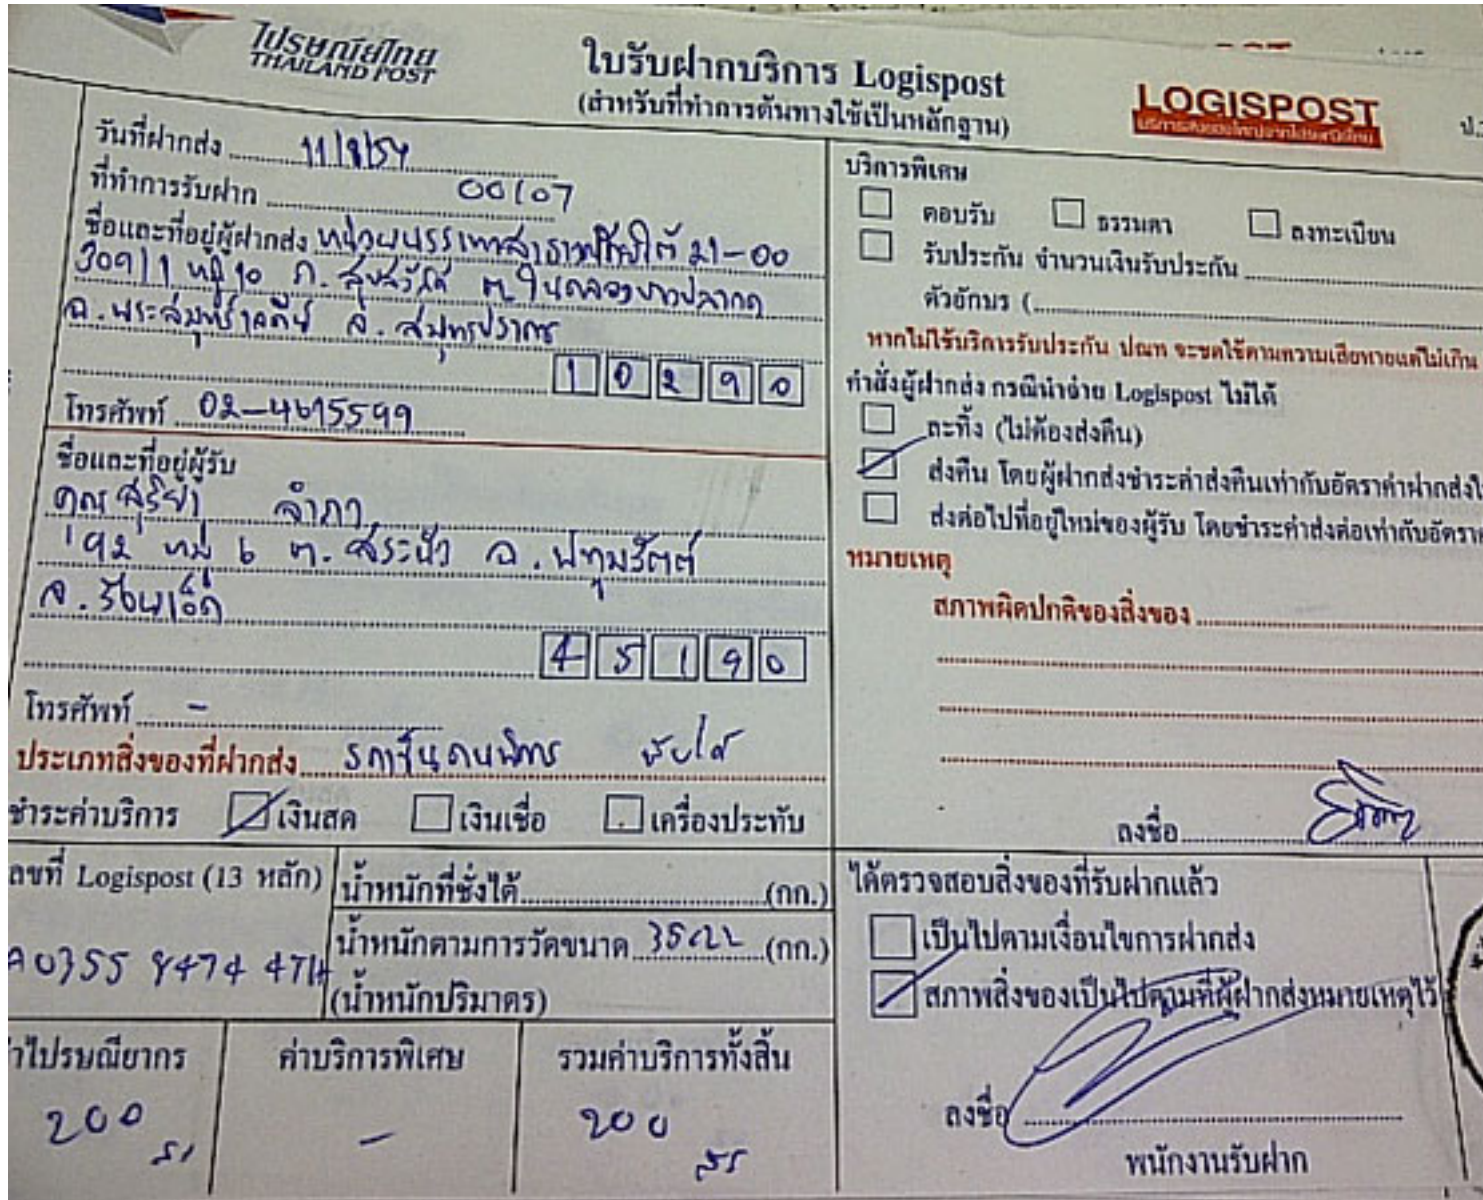 ไปรษณีย์ไทย
THAILAND POST
ใบรับฝากบริการ Logispost
(สำหรับที่ทำการต้นทางใช้เป็นหลักฐาน)
LOGISPOST
วันที่ฝากส่ง 11/8/54
ที่ทำการรับฝาก 00107
ชื่อและที่อยู่ผู้ฝากส่ง หน่วยบรรเทาสาธารณภัยใต้ 21-00
309/1 หมู่ 10 ถ. สุขสวัสดิ์ ต. ในคลองบางปลากด
อ. พระสมุทรเจดีย์ จ. สมุทรปราการ
10290
โทรศัพท์ 02-4615599
ชื่อและที่อยู่ผู้รับ
คุณ สุริยา ลำภา
192 หมู่ 6 ต. สระบัว อ. ปทุมรัตต์
จ. ร้อยเอ็ด
45190
โทรศัพท์ -
ประเภทสิ่งของที่ฝากส่ง รถเข็นคนพิการ พับได้
ชำระค่าบริการ เงินสด เงินเชื่อ เครื่องประทับ
ลขที่ Logispost (13 หลัก)
0355 8474 4TH
น้ำหนักที่ชั่งได้ (กก.)
น้ำหนักตามการวัดขนาด (กก.)
(น้ำหนักปริมาตร)
าไปรษณียากร ค่าบริการพิเศษ รวมค่าบริการทั้งสิ้น
200 - 200
บริการพิเศษ
ตอบรับ ธรรมดา ลงทะเบียน
รับประกัน จำนวนเงินรับประกัน
ตัวอักษร (
หากไม่ใช้บริการรับประกัน ปณท จะชดใช้ตามความเสียหายแต่ไม่เกิน
คำสั่งผู้ฝากส่ง กรณีนำจ่าย Logispost ไม่ได้
ละทิ้ง (ไม่ต้องส่งคืน)
ส่งคืน โดยผู้ฝากส่งชำระค่าส่งคืนเท่ากับอัตราค่าฝากส่งใ
ส่งต่อไปที่อยู่ใหม่ของผู้รับ โดยชำระค่าส่งต่อเท่ากับอัตรา
หมายเหตุ
สภาพผิดปกติของสิ่งของ
ลงชื่อ
ได้ตรวจสอบสิ่งของที่รับฝากแล้ว
เป็นไปตามเงื่อนไขการฝากส่ง
สภาพสิ่งของเป็นไปตามที่ผู้ฝากส่งหมายเหตุไว้
ลงชื่อ
พนักงานรับฝาก